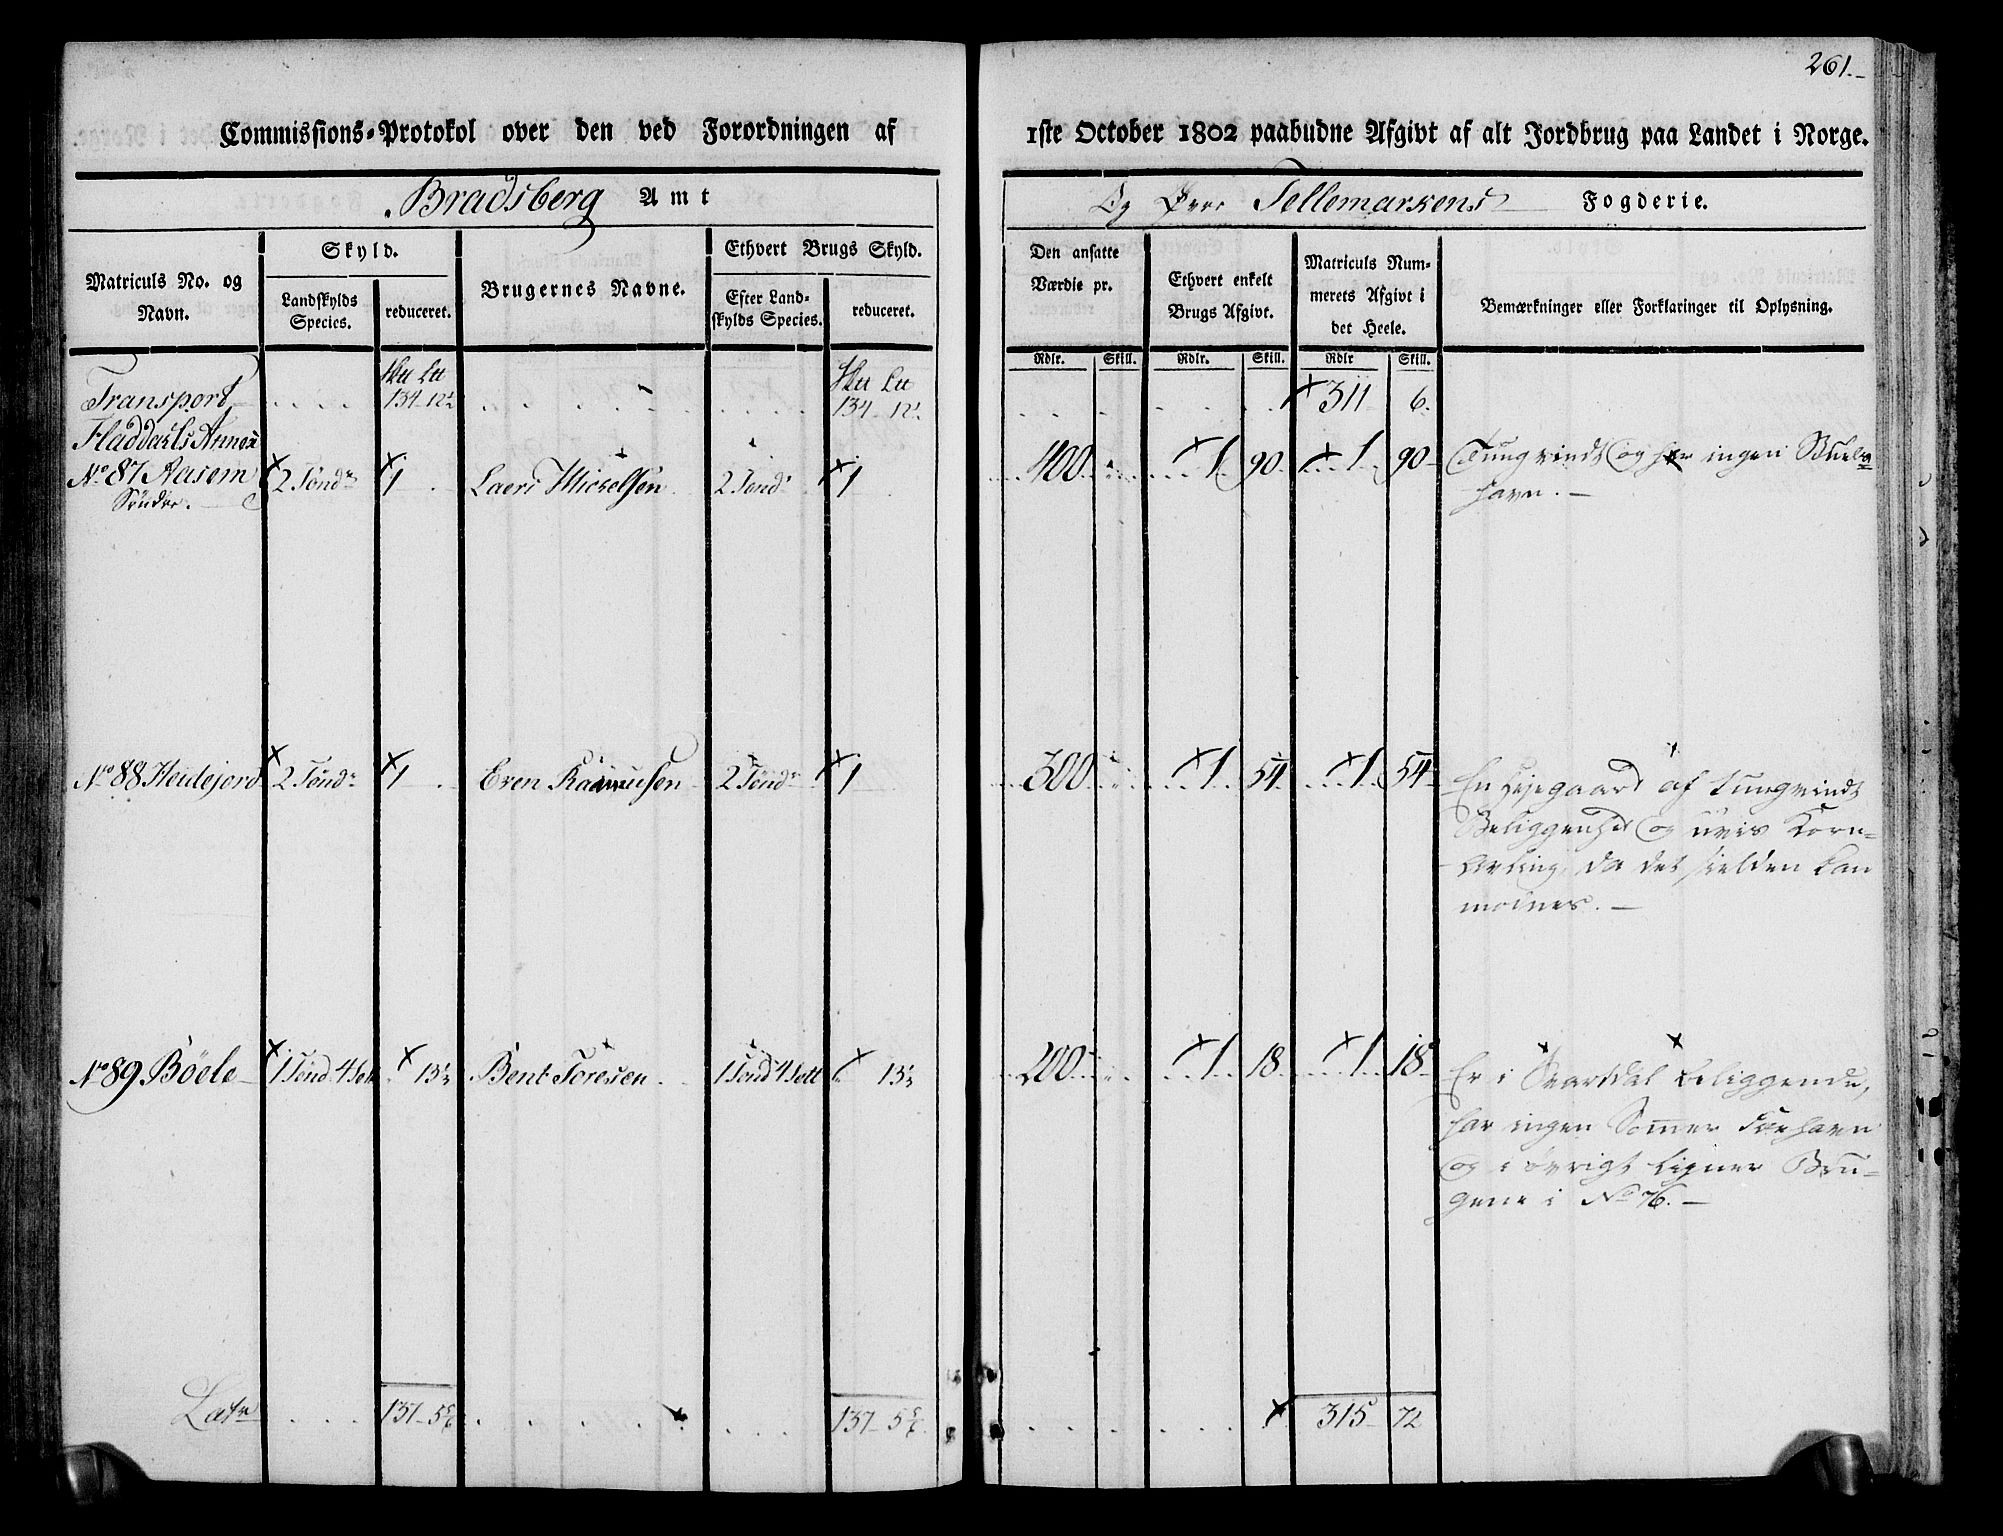 261.
Commissions-Protokol over den ved Forordningen af
1ste October 1802 paabudne Afgivt af alt Jordbrug paa Landet i Norge.
Bradsberg Amt
Og Øvre Tellemarkens Fogderie.
Matriculs No. og Navn.
Skyld.
Landskylds Species.
reduceret.
Brugernes Navne.
Ethvert Brugs Skyld.
Efter Landskylds Species.
reduceret.
Den ansatte Værdie pr.
Ethvert enkelt Brugs Afgivt.
Matriculs Nummerets Afgivt i det Heele.
Bemærkninger eller Forklaringer til Oplysning.
Rdlr. Skill. Rdlr. Skill. Rdlr Skill.
Transport 134 12½ 134 12½ 311 6.
Fladdals Annex
No 87 Aasem 2 Tønd 1 Laers Mickelsen 2 Tønd 1 400 1 90 1 90 Tungvindt og har ingen
Søndre. havn.
No 88 Heidejord 2 Tønd 1 Even Rasmusen 2 Tønd 1 300 1 54 1 54 En gaard af tungvindt
Beliggenhed og uvis Korn-
Avling, da det sielden kan
modnes.
No 89 Böele 1 Tønd 4 Sett 13⅓ Bent Toresen 1 Tønd 4 Sett 13⅓ 200 1 18 1 18 Er i Svartdal beliggende,
har ingen Sommer havn
og i øvrigt ligner Bru-
gene i No 76.
Lat 137 5⅚ 137 5⅚ 315 72